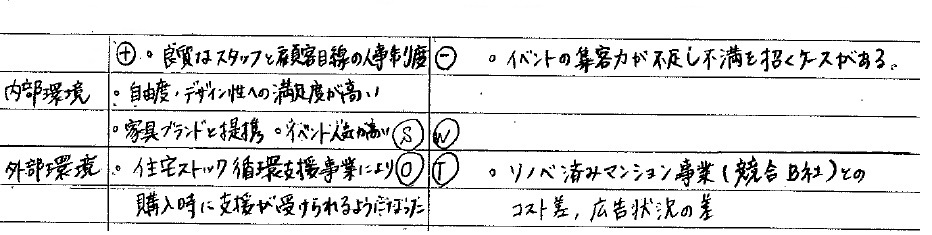 ⊕ 。良質なスタッフと顧客目線の人事制度 ⊖ 。イベントの集客力が不足し不満を招くケースがある。
内部環境 。自由度・デザイン性への満足度が高い
。家具ブランドと提携 。イベント人気が高い Ⓢ Ⓦ
外部環境 。住宅ストック循環支援事業により Ⓞ Ⓣ 。リノベ済みマンション事業(競合B社)との
購入時に支援が受けられるようになった コスト差，広告状況の差